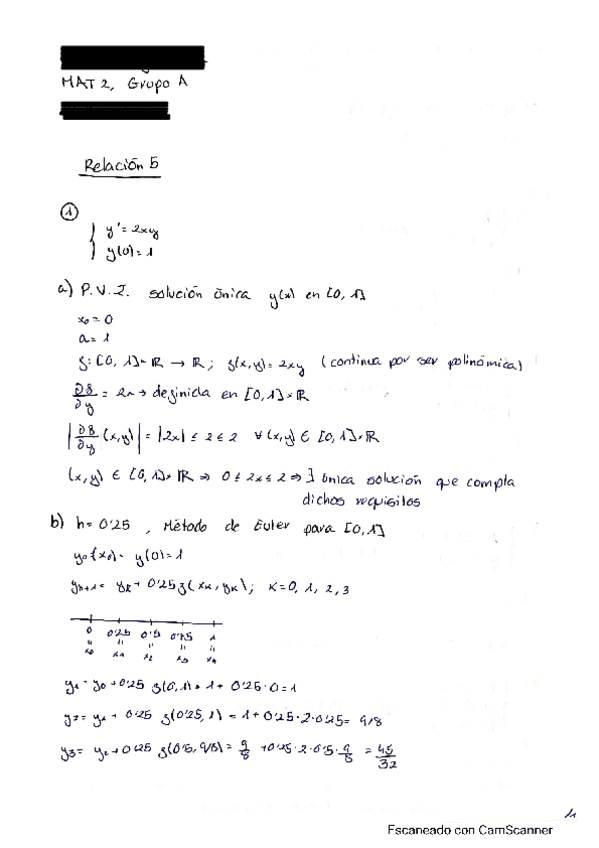 MAT 2, Grupo A
Relación 5
①
{ y' = 2xy
y(0) = 1
a) P.V.I. solución única y(x) en [0, 1]
x₀ = 0
a = 1
f: [0, 1] × ℝ → ℝ; f(x,y) = 2xy (continua por ser polinómica)
∂f/∂y = 2x → definida en [0,1] × ℝ
|∂f/∂y (x,y)| = |2x| ≤ 2 ≤ 2 ∀(x,y) ∈ [0, 1] × ℝ
(x,y) ∈ [0, 1] × ℝ ⇒ 0 ≤ 2x ≤ 2 ⇒ ∃ única solución que compla
dichos requisitos
b) h = 0'25 , Método de Euler para [0,1]
y₀(x₀) = y(0) = 1
yₖ₊₁ = yₖ + 0'25 f(xₖ, yₖ); K = 0, 1, 2, 3
0 0'25 0'5 0'75 1
" " " " "
x₀ x₁ x₂ x₃ x₄
y₁ = y₀ + 0'25 f(0, 1) = 1 + 0'25 · 0 = 1
y₂ = y₁ + 0'25 f(0'25, 1) = 1 + 0'25 · 2 · 0'25 = 9/8
y₃ = y₂ + 0'25 f(0'5, 9/8) = 9/8 + 0'25 · 2 · 0'5 · 9/8 = 45/32
Escaneado con CamScanner